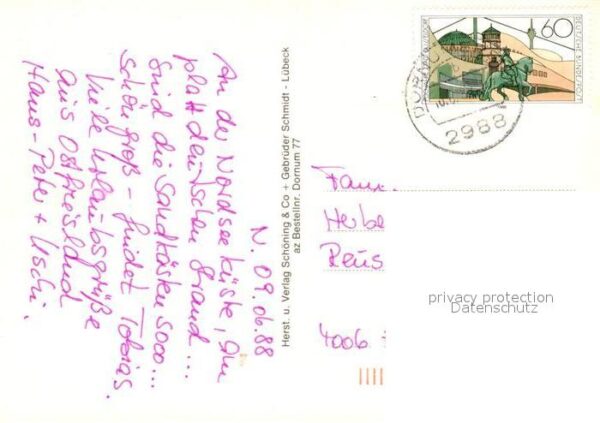 N. 09.06.88
An der Nordseeküste, am
plattdeutschen Strand...
Sind die Sandkästen sooo...
schön groß - findet Tobias.
Viele Urlaubsgrüße
aus Ostfriesland
Hans-Peter + Uschi.
Herst. u. Verlag Schöning & Co + Gebrüder Schmidt - Lübeck
az Bestellnr. Dornum 77
60
DEUTSCHE BUNDESPOST
2988
Fam.
Herbe
Reus
4006
privacy protection
Datenschutz